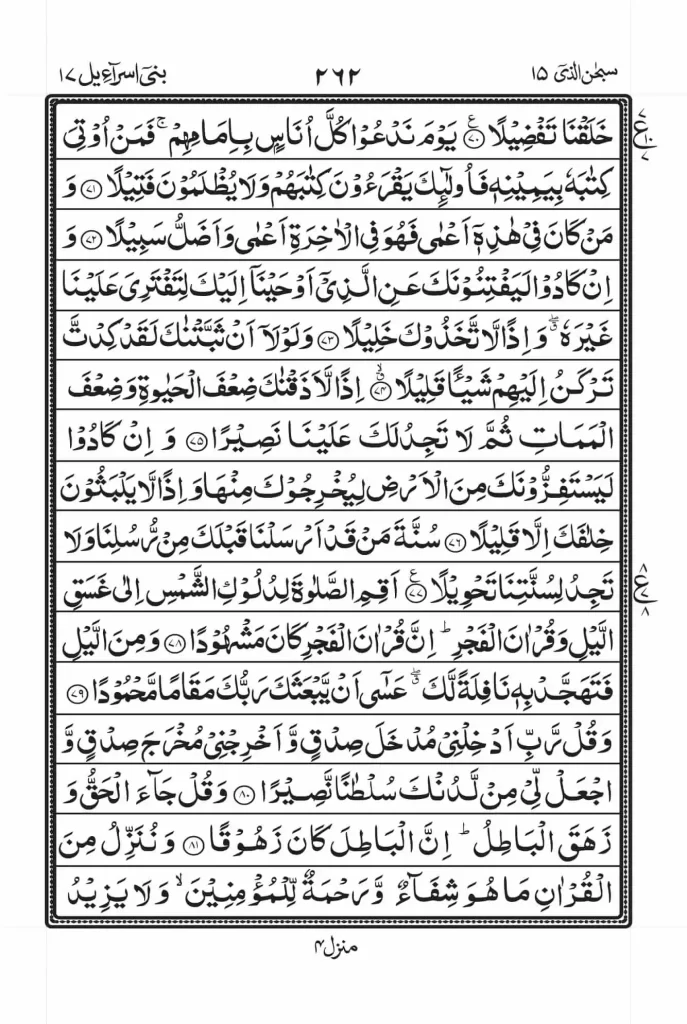 سبحٰن الذیٓ ١٥
٢٦٢
بنیٓ اسرآءیل ١٧
خَلَقۡنَا تَفۡضِيۡلًا ﴿٧٠﴾ يَوۡمَ نَدۡعُوۡا كُلَّ اُنَاسٍۢ بِاِمَامِهِمۡ‌ۚ فَمَنۡ اُوۡتِىَ
كِتٰبَهٗ بِيَمِيۡنِهٖ فَاُولٰۤٮِٕكَ يَقۡرَءُوۡنَ كِتٰبَهُمۡ وَلَا يُظۡلَمُوۡنَ فَتِيۡلًا ﴿٧١﴾ وَ
مَنۡ كَانَ فِىۡ هٰذِهٖۤ اَعۡمٰى فَهُوَ فِى الۡاٰخِرَةِ اَعۡمٰى وَاَضَلُّ سَبِيۡلًا ﴿٧٢﴾ وَ
اِنۡ كَادُوۡا لَيَفۡتِنُوۡنَكَ عَنِ الَّذِىۡۤ اَوۡحَيۡنَاۤ اِلَيۡكَ لِتَفۡتَرِىَ عَلَيۡنَا
غَيۡرَهٗ‌ ۖ وَاِذًا لَّاتَّخَذُوۡكَ خَلِيۡلًا ﴿٧٣﴾ وَلَوۡلَاۤ اَنۡ ثَبَّتۡنٰكَ لَقَدۡ كِدْتَّ
تَرۡكَنُ اِلَيۡهِمۡ شَيۡـًٔـا قَلِيۡلًا ۙ ﴿٧٤﴾ اِذًا لَّاَذَقۡنٰكَ ضِعۡفَ الۡحَيٰوةِ وَضِعۡفَ
الۡمَمَاتِ ثُمَّ لَا تَجِدُ لَكَ عَلَيۡنَا نَصِيۡرًا ﴿٧٥﴾ وَ اِنۡ كَادُوۡا
لَيَسۡتَفِزُّوۡنَكَ مِنَ الۡاَرۡضِ لِيُخۡرِجُوۡكَ مِنۡهَا‌ وَاِذًا لَّا يَلۡبَثُوۡنَ
خِلٰفَكَ اِلَّا قَلِيۡلًا ﴿٧٦﴾ سُنَّةَ مَنۡ قَدۡ اَرۡسَلۡنَا قَبۡلَكَ مِنۡ رُّسُلِنَا‌ وَلَا
تَجِدُ لِسُنَّتِنَا تَحۡوِيۡلًا ﴿٧٧﴾ اَقِمِ الصَّلٰوةَ لِدُلُوۡكِ الشَّمۡسِ اِلٰى غَسَقِ
الَّيۡلِ وَقُرۡاٰنَ الۡفَجۡرِ‌ؕ اِنَّ قُرۡاٰنَ الۡفَجۡرِ كَانَ مَشۡهُوۡدًا ﴿٧٨﴾ وَمِنَ الَّيۡلِ
فَتَهَجَّدۡ بِهٖ نَافِلَةً لَّكَ ۖ عَسٰۤى اَنۡ يَّبۡعَثَكَ رَبُّكَ مَقَامًا مَّحۡمُوۡدًا ﴿٧٩﴾
وَقُلۡ رَّبِّ اَدۡخِلۡنِىۡ مُدۡخَلَ صِدۡقٍ وَّاَخۡرِجۡنِىۡ مُخۡرَجَ صِدۡقٍ وَّ
اجۡعَلۡ لِّىۡ مِنۡ لَّدُنۡكَ سُلۡطٰنًا نَّصِيۡرًا ﴿٨٠﴾ وَقُلۡ جَآءَ الۡحَقُّ وَ
زَهَقَ الۡبَاطِلُ‌ؕ اِنَّ الۡبَاطِلَ كَانَ زَهُوۡقًا ﴿٨١﴾ وَنُنَزِّلُ مِنَ
الۡقُرۡاٰنِ مَا هُوَ شِفَآءٌ وَّرَحۡمَةٌ لِّلۡمُؤۡمِنِيۡنَ‌ۙ وَلَا يَزِيۡدُ
٧
ع
١٠
٧
٨
ع
٧
٨
منزل ۴